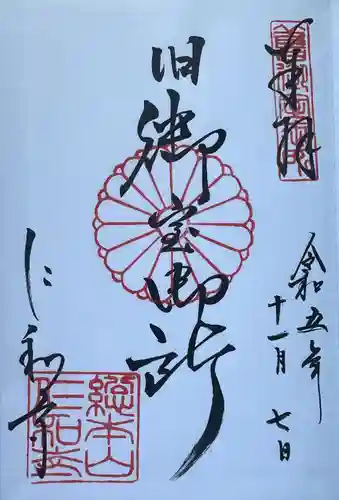 奉拝
令和五年
十一月 七日
旧御室御所
に和寺
総本山
仁和寺